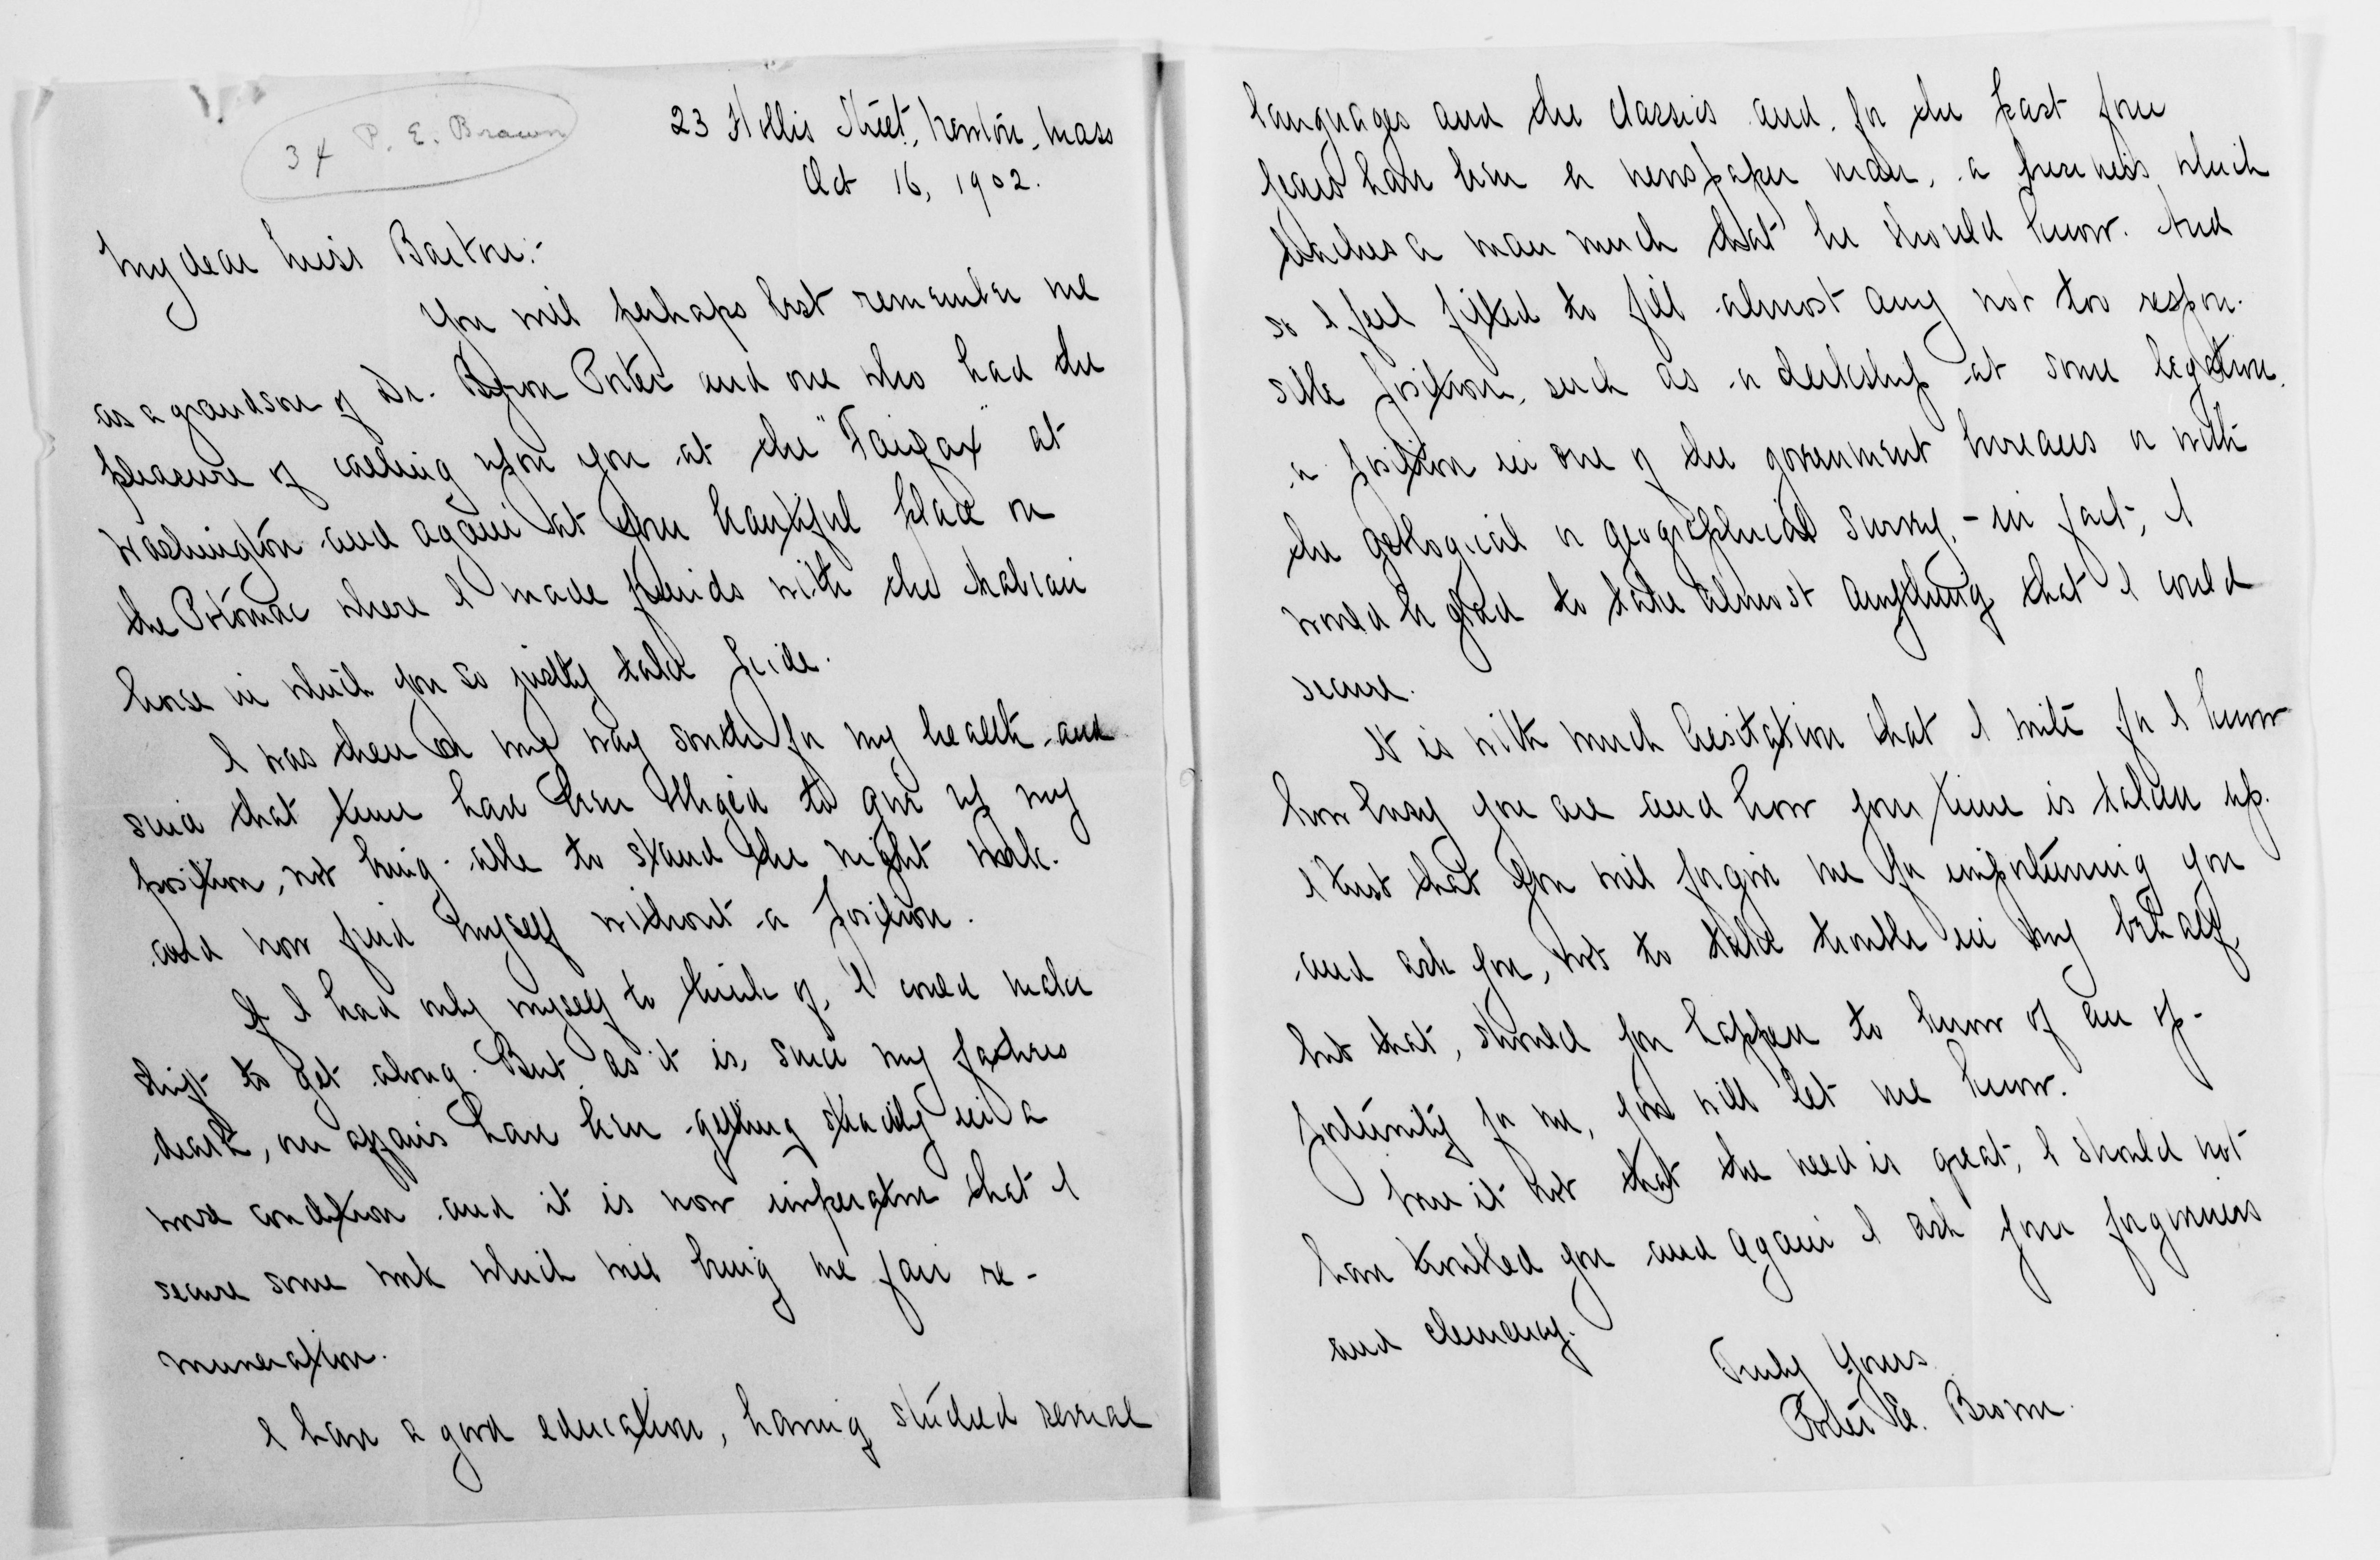 34 P. E. Brown
23 Hollis Street, Newton, Mass
Oct 16, 1902.
My dear Miss Barton:-
You will perhaps best remember me
as a grandson of Dr. Byron Porter and one who had the
pleasure of calling upon you at the "Fairfax" at
Washington and again at your beautiful place on
the Potomac where I made friends with the Arabian
horse in which you so justly take pride.
I was then on my way south for my health and
since that time have been obliged to give up my
position, not being able to stand the night work.
and now find myself without a position.
If I had only myself to think of, I could make
shift to get along. But as it is, since my fathers
death, our affairs have been getting steadily in a
worse condition and it is now imperative that I
secure some work which will bring me fair re-
muneration.
I have a good education, having studied several
languages and the classics and for the past four
years have been a newspaper man, a business which
teaches a man much that he should know. And
so I feel fitted to fill almost any not too respon-
sible position, such as a clerkship at some legation,
a position in one of the government bureaus or with
the geological or geographical survey, - in fact, I
would be glad to take almost anything that I could
secure.
It is with much hesitation that I write for I know
how busy you are and how your time is taken up.
I trust that you will forgive me for importuning you
and ask you, not to take trouble in my behalf,
but that, should you happen to know of an op-
portunity for me, you will let me know.
Were it not that the need is great, I should not
have troubled you and again I ask your forgiveness
and clemency.
Truly Yours
Porter E. Brown.